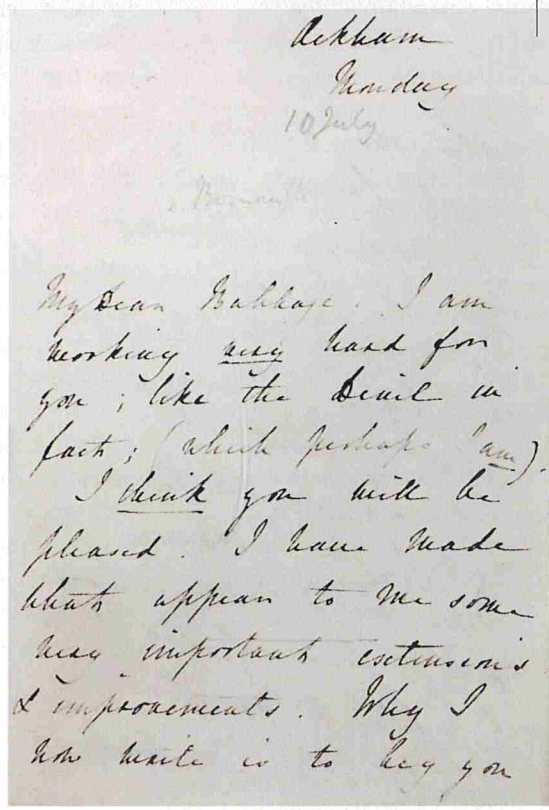 Ockham
Monday
10 July
My Dear Babbage. I am
working very hard for
you; like the Devil in
fact; (which perhaps I am).
I think you will be
pleased. I have made
what appear to me some
very important extensions
& improvements. Why I
now write is to beg you